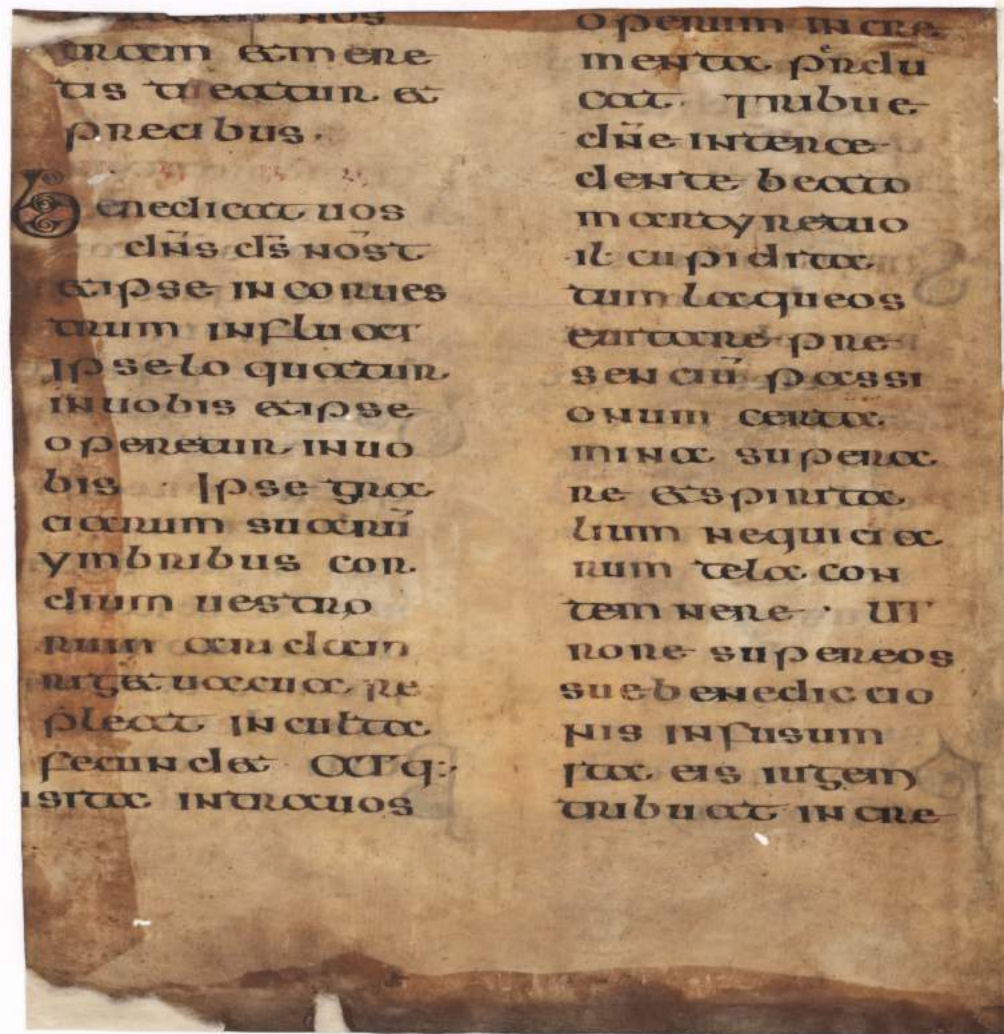 nos
tram et mere
tis tueatur et
precibus.
Benedicat uos
dn̄s ds̄ nōst
et ipse in cor ues
trum influat
Ipse loquatur
in uobis et ipse
operetur in uo
bis. Ipse gra
ciarum suarū
ymbribus cor
dium uestro
rum arida
riget uacua re
pleat inculta
fecundet ATq:
ista intra uos
operum incre
menta p̄rdu
cat. Tribue
dn̄e interce
dente beato
martyre tuo
il cupidita
tum laqueos
euitare pre
senciū passi
onum certa
mina supera
re et spirita
lium nequicia
rum tela con
temnere. UT
rore super eos
sue benediccio
nis infusum
ita eis iugem
tribuat incre